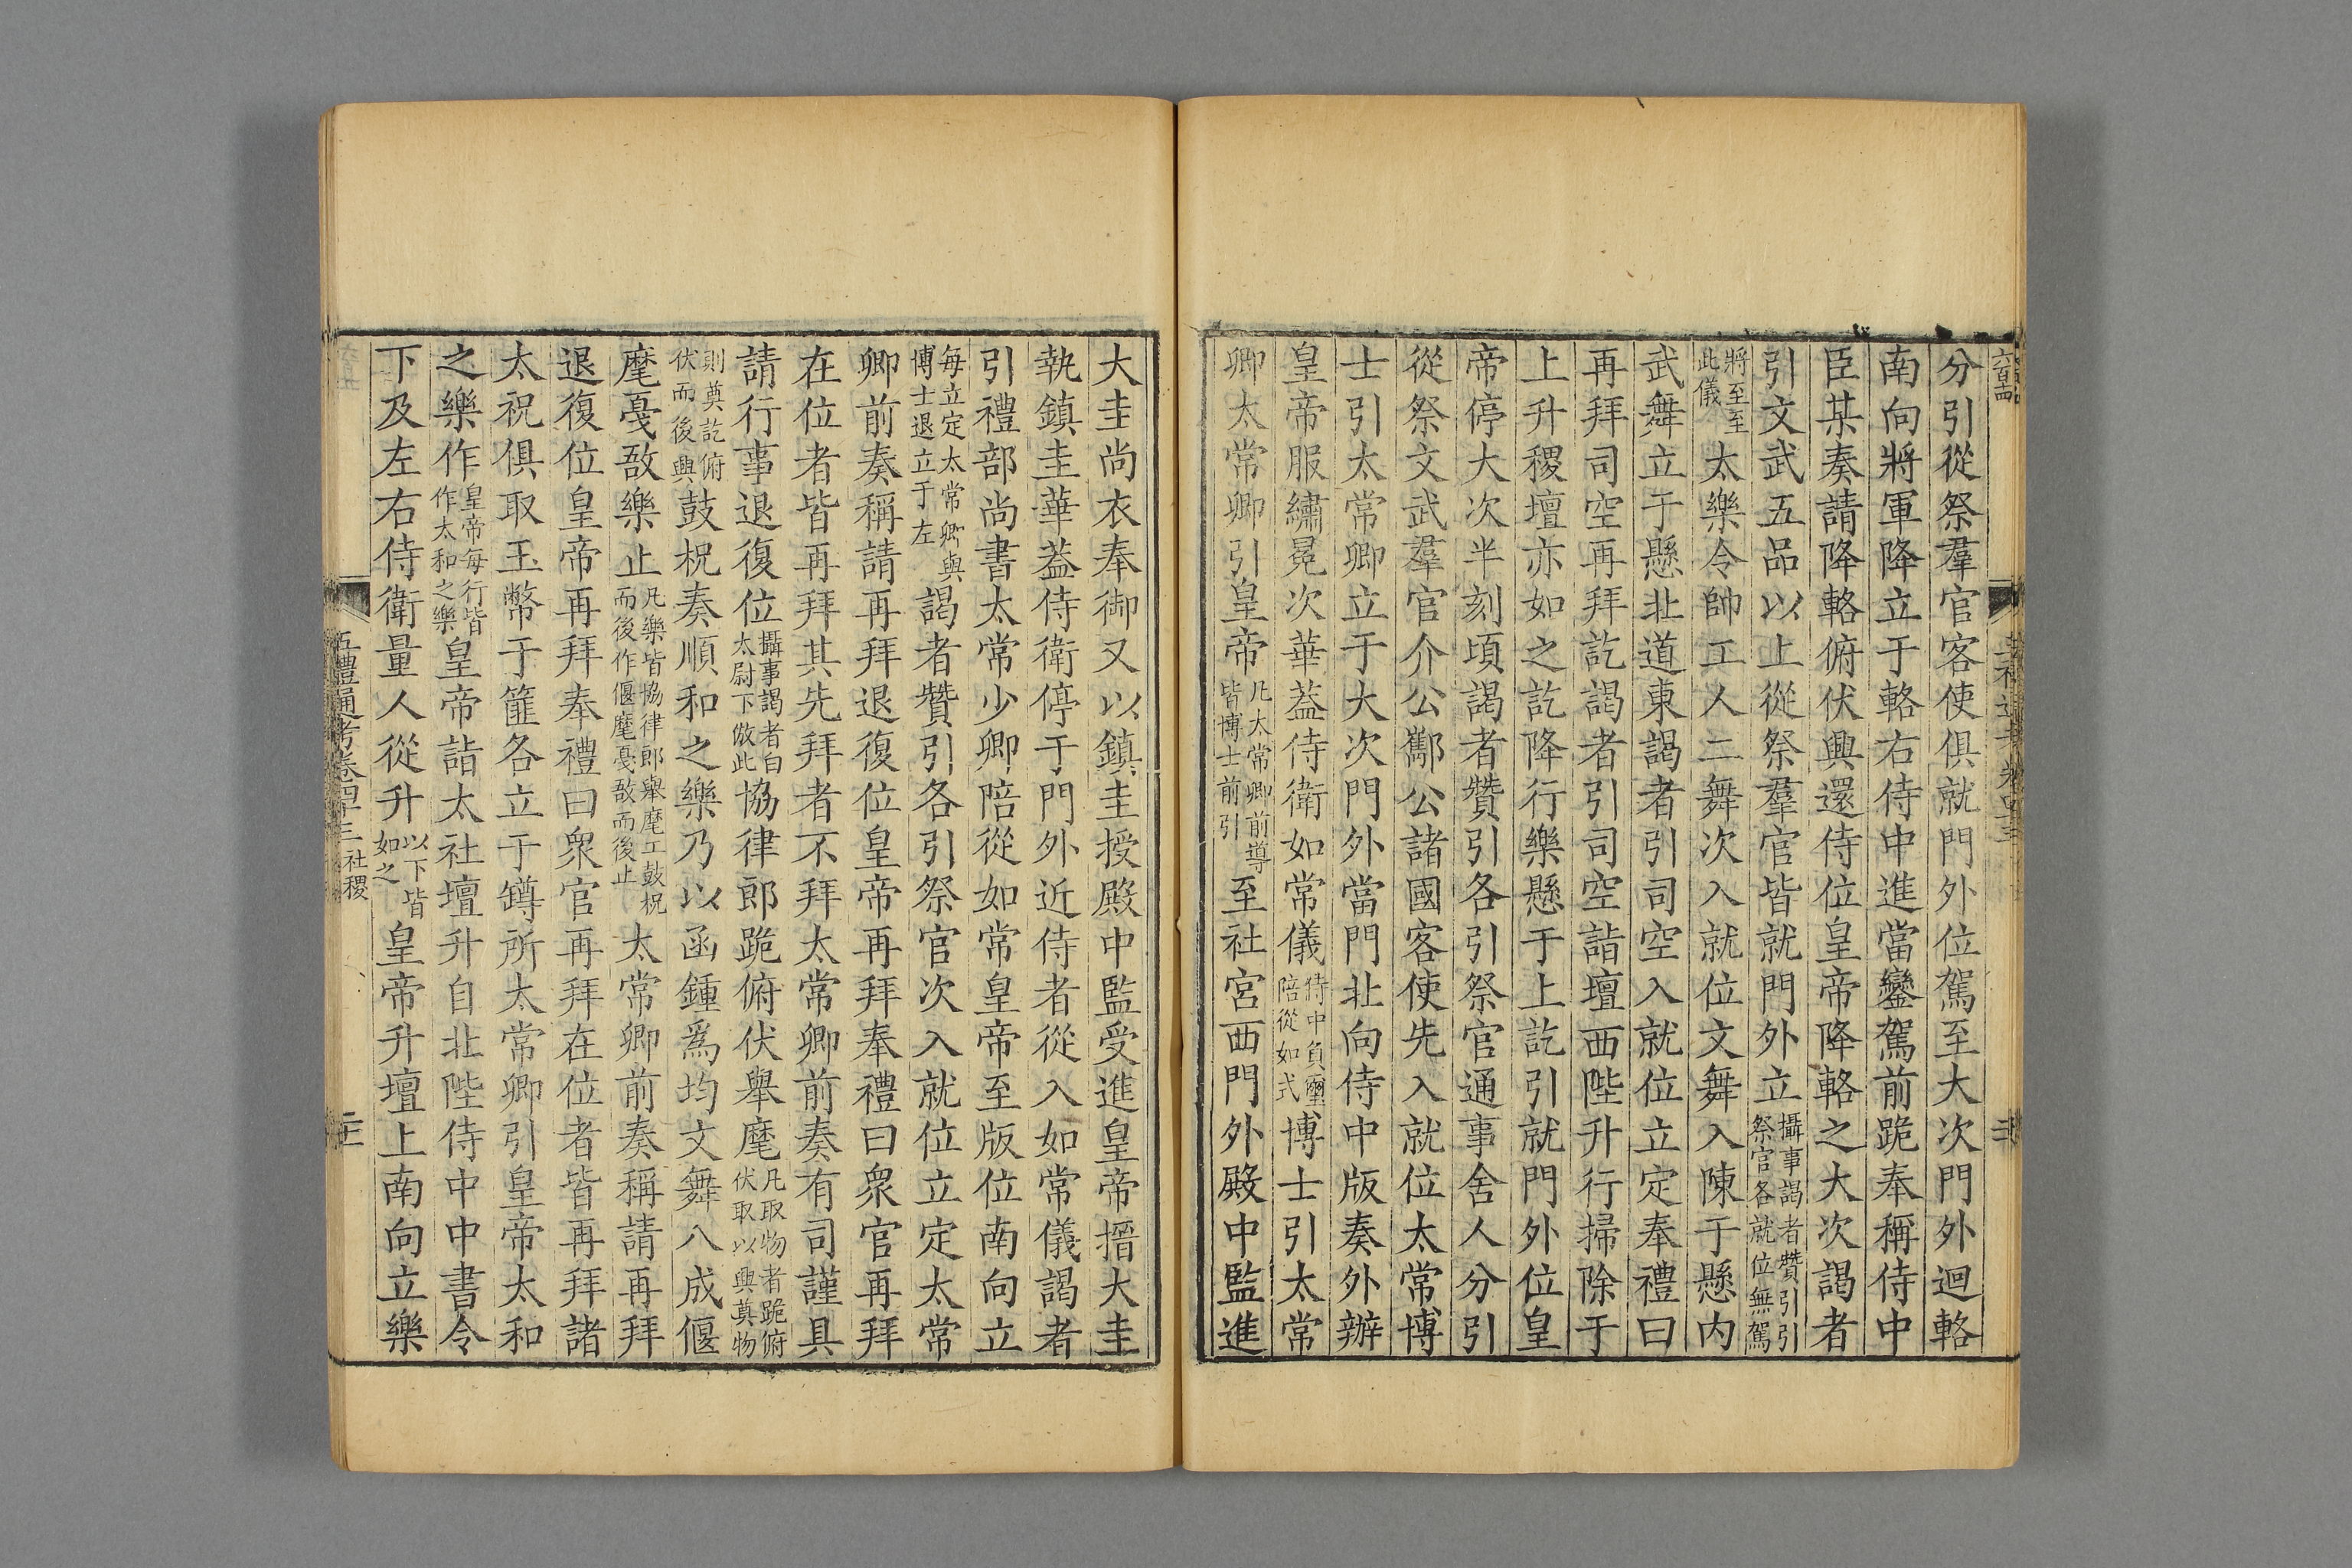 分引從祭羣官客使俱就門外位駕至大次門外迴輅
南向將軍降立于輅右侍中進當鑾駕前跪奉稱侍中
臣某奏請降輅俯伏興還侍位皇帝降輅之大次謁者
引文武五品以上從祭羣官皆就門外立攝事謁者贊引引祭官各就位無駕
將至至此儀太樂令帥工人二舞次入就位文舞入陳于懸内
武舞立于懸北道東謁者引司空入就位立定奉禮曰
再拜司空再拜訖謁者引司空詣壇西陛升行掃除于
上升稷壇亦如之訖降行樂懸于上訖引就門外位皇
帝停大次半刻頃謁者贊引各引祭官通事舍人分引
從祭文武羣官介公酅公諸國客使先入就位太常博
士引太常卿立于大次門外當門北向侍中版奏外辦
皇帝服繡冕次華蓋侍衛如常儀侍中負璽陪從如式博士引太常
卿太常卿引皇帝凡太常卿前導皆博士前引至社宮西門外殿中監進
大圭尚衣奉御又以鎮圭授殿中監受進皇帝搢大圭
執鎮圭華蓋侍衛停于門外近侍者從入如常儀謁者
引禮部尚書太常少卿陪從如常皇帝至版位南向立
每立定太常卿與博士退立于左謁者贊引各引祭官次入就位立定太常
卿前奏稱請再拜退復位皇帝再拜奉禮曰衆官再拜
在位者皆再拜其先拜者不拜太常卿前奏有司謹具
請行事退復位攝事謁者白太尉下倣此協律郎跪俯伏舉麾凡取物者跪俯伏取以興奠物
則奠訖俯伏而後興鼓柷奏順和之樂乃以函鍾爲均文舞八成偃
麾戞敔樂止凡樂皆協律郎舉麾工鼓柷而後作偃麾戞敔而後止太常卿前奏稱請再拜
退復位皇帝再拜奉禮曰衆官再拜在位者皆再拜諸
太祝俱取玉幣于篚各立于罇所太常卿引皇帝太和
之樂作皇帝每行皆作太和之樂皇帝詣太社壇升自北陛侍中中書令
下及左右侍衛量人從升以下皆如之皇帝升壇上南向立樂
五禮通考卷四十三 社稷